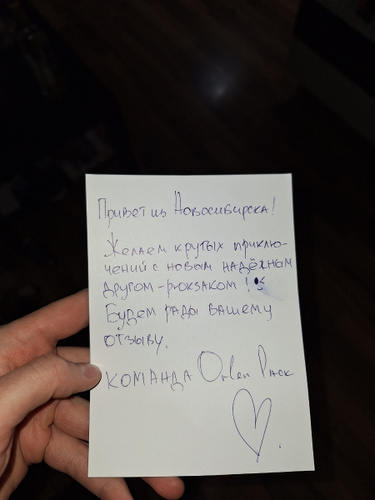 Привет из Новосибирска!
Желаем крутых приклю-
чений с новым надёжным
другом-рюкзаком!
Будем рады вашему
отзыву.
команда Orlen Pack